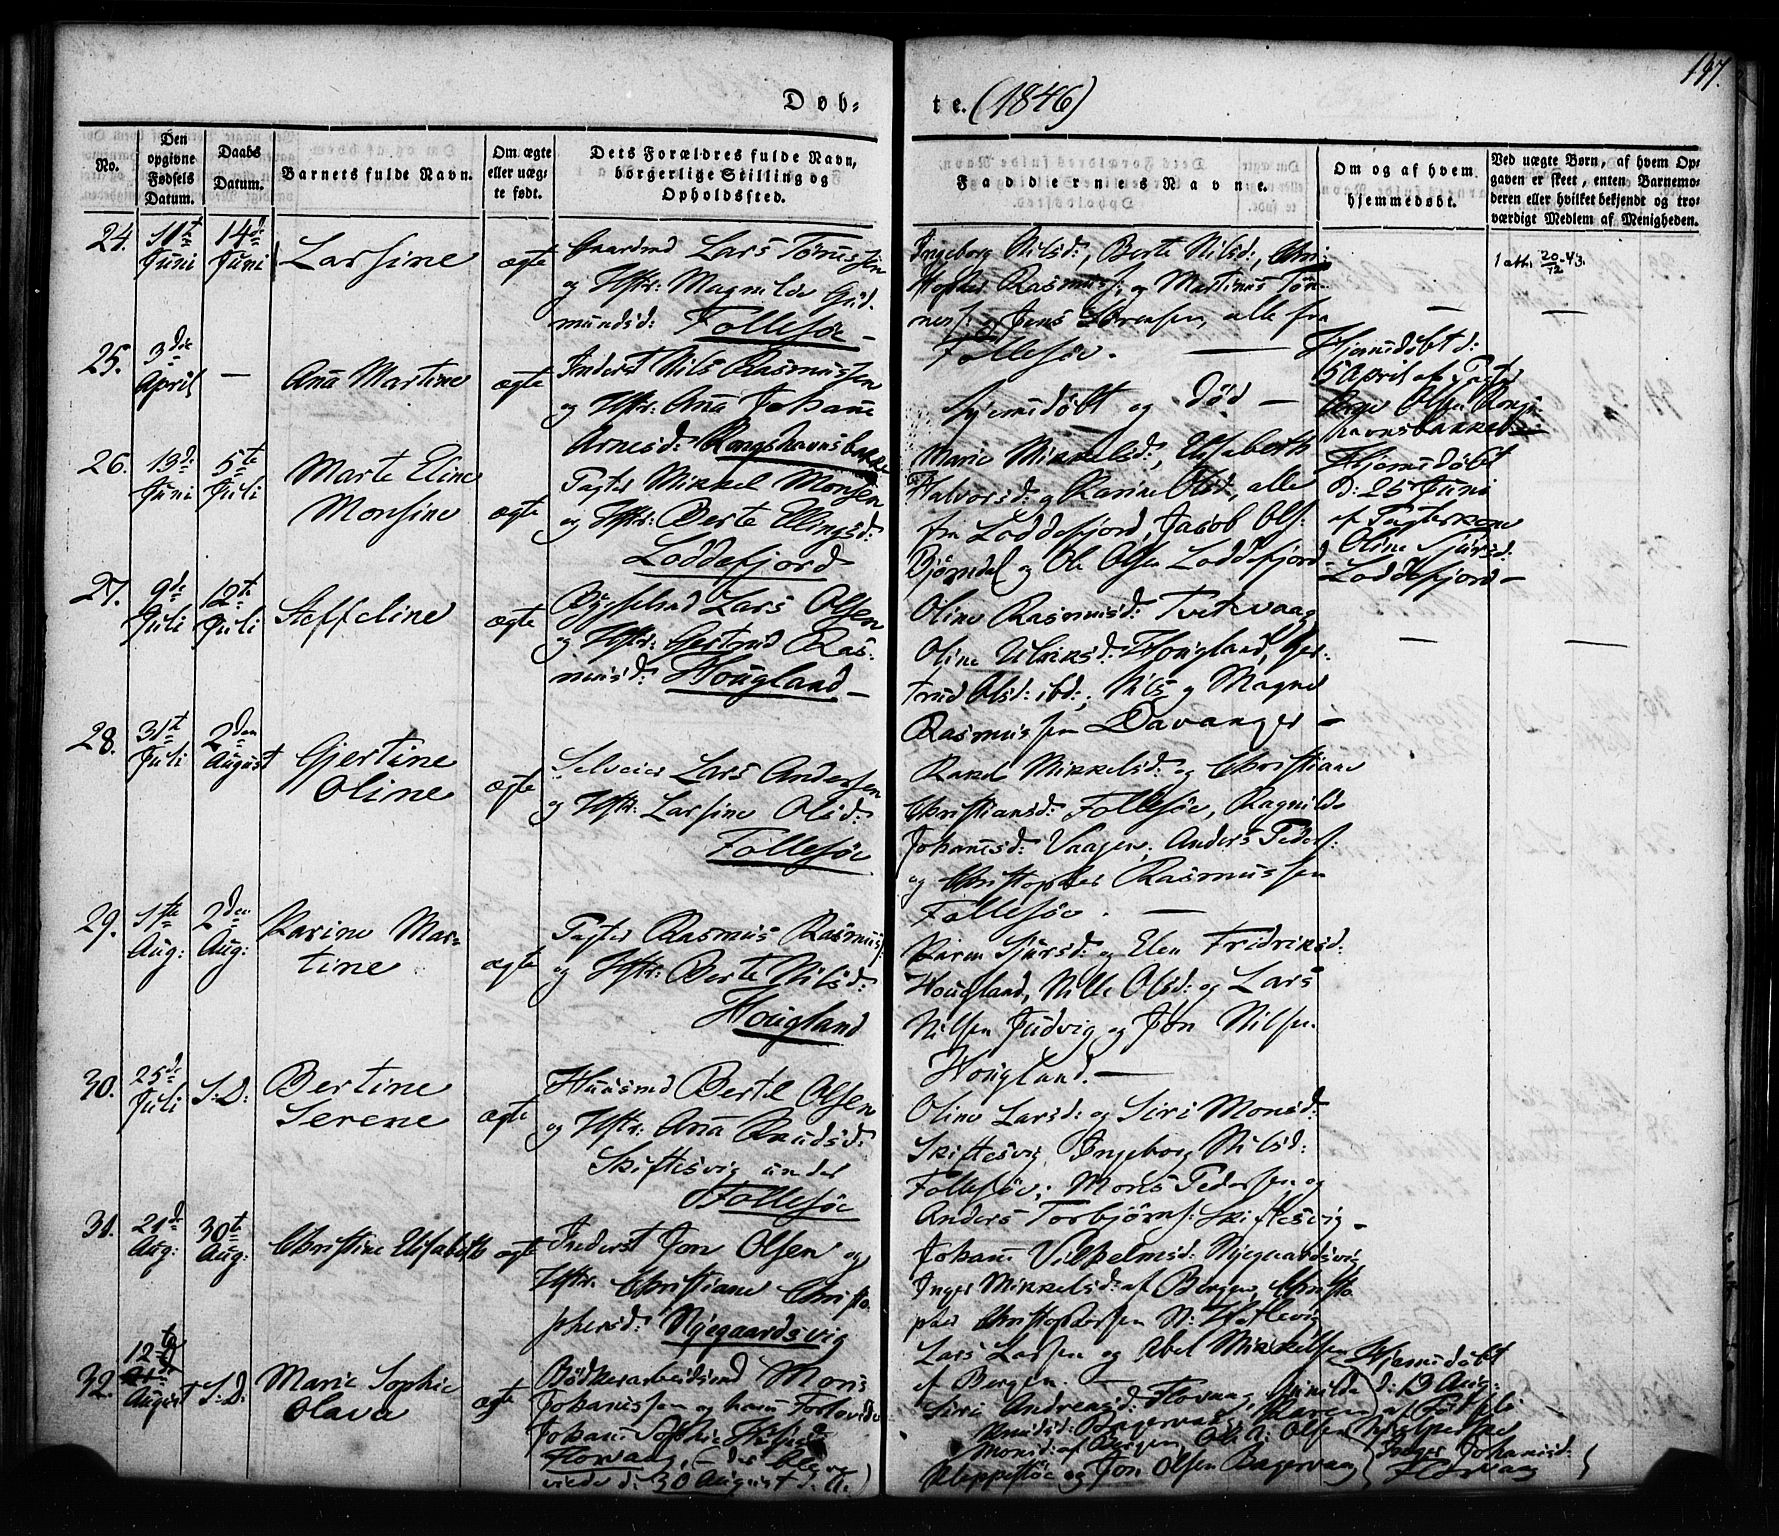 147.
Døb-
te. (1846)
No.
Den opgivne Fødsels Datum.
Daabs Datum.
Barnets fulde Navn.
Om ægte eller uægte født.
Dets Forældres fulde Navn, borgerlige Stilling og Opholdssted.
Faddernes Navne.
Om og af hvem hjemmedøbt.
Ved uægte Børn, af hvem Opgaven er skeet, enten Barnemoderen eller hvilket bekjendt og troværdigt Medlem af Menigheden.
24.
11te Juni
14de Juni
Larsine
ægte
Gaardmd Lars Tønnessen
og Hstr: Magnilde Gud-
mundsd: Follesøe —
Ingeborg Nilsd:, Berte Nilsd:, Chri-
stopher Rasmusf: og Martinus Tøn-
nesf: og Jens Sørensen, alle fra
Follesøe. —
—
1 att. 20/12-43.
—
25.
3die April
—
Ana Martine
ægte
Inderst Nils Rasmussen
og Hstr: Ana Johane
Arnesd: Kongshavnsbakke
Hjemmdøbt og død —
Hjemdøbt d:
5 April af
Olsen Kongs-
havnsbakke
26.
13de Juni
5te Juli
Marte Eline
Monsine
ægte
Pagter Mikkel Monsen
og Hstr: Berte Ellingsd:
Loddefjord
Marie Mikkelsd:, Elisabeth
Halvorsd: og Karine Olsd:, alle
fra Loddefjord, Jacob Ols:
Bjørndal og Ole Olsen Loddefjord
Hjemmdøbt
d: 25 Juni
af Pagterkone
Oline Sjursd:
Loddefjord —
27.
9de Juli
12te Juli
Steffeline
ægte
Bygselmd Lars Olsen
og Hstr: Gertrud Ras-
musd: Hougland —
Oline Rasmusd: Tvetevaag
Oline Ulriksd: Hougland, Ger-
trud Olsd: ibd:, Nils og Magne
Rasmussen Davanger —
—
—
28.
31te Juli
2den August
Gjertine
Oline
ægte
Selveier Lars Andersen
og Hstr: Larsine Olsd:
Follesøe
Rakel Mikkelsd: og Christiane
Christiansd: Follesøe, Ragnilde
Johannesd: Vaagen, Anders Peders:
og Christopher Rasmussen
Follesøe. —
29.
1ste Aug:
2den Aug:
Karine Mar-
tine
ægte
Pagter Rasmus Rasmusf:
og Hstr: Berte Nilsd:
Hougland
Karen Sjursd: og Elen Fridriksd:
Hougland, Nille Olsd: og Lars
Nilsen Judvig og Jon Nilsen
Hougland. —
30.
25de Juli
S:D:
Bertine
Serene
ægte
Huusmd Bertel Olsen
og Hstr: Ana Knudsd:
Skiftesvig under
Follesøe
Oline Larsd: og Siri Monsd:
Skiftesvig Ingeborg Nilsd:
Follesøe, Mons Pedersen og
Anders Torbjørns: Skiftesvig —
31.
21de Aug:
30te Aug:
Christine Elisabeth
ægte
Inderst Jon Olsen og
Hstr. Christiane Christo-
phersd: Nyegaardsvig
Johane Vilhelmsd: Nyegaardsvig
Inger Mikkelsd: af Bergen, Christo-
pher Christophersen N: Hetlevig
Lars Larsen og Abel Mikkelsen
af Bergen. —
32.
12te August
S:D:
Marie Sophie
Olava
ægte
Bødkerarbeidsmd Mons
Johannesen og hans Forlovede
Johane Sophie
Florvaag, — der bleve
viede d: 30 August d: A:)
Siri Andreasd: Florvaag, Gunilde
Knudsd: Bagervaag, Karen
Monsd: af Bergen, Ole A: Olsen
Kleppestøe og Jon Olsen Bagervaag
Hjemmdøbt
d: 13 Aug:
af Jordeft:
Inger Johannesd:
Florvaag